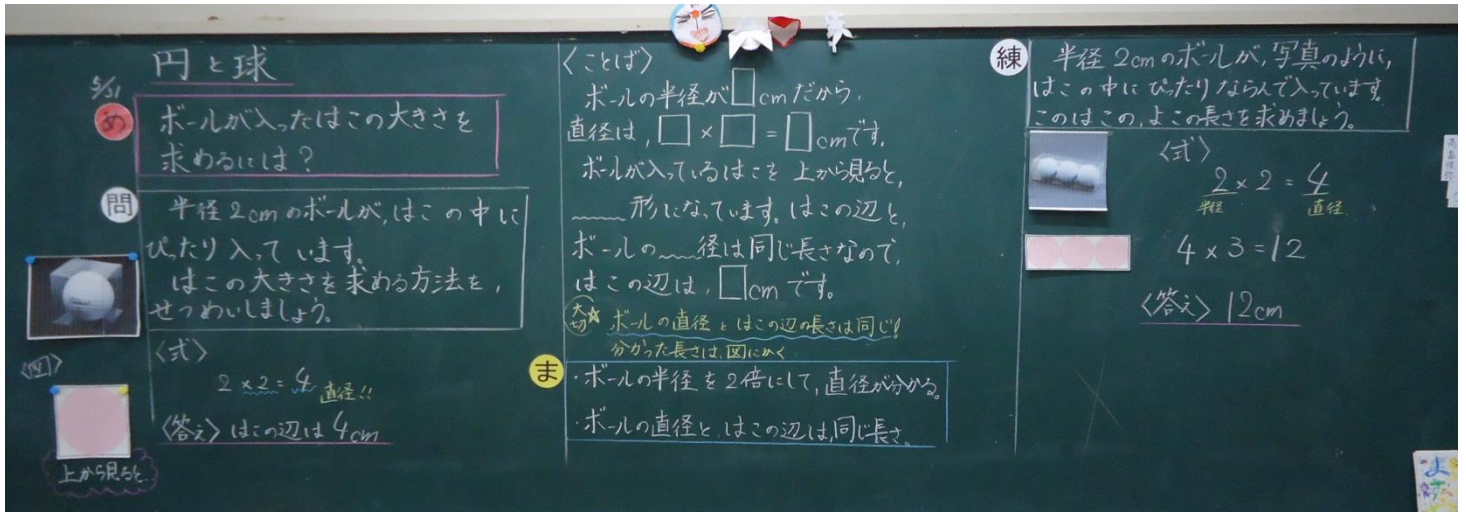 円と球
5/31
め
ボールが入ったはこの大きさを
求めるには？
問
半径2cmのボールが,はこの中に
ぴったり入っています。
はこの大きさを求める方法を,
せつめいしましょう。
〈図〉
上から見ると
〈式〉
2×2=4 直径!!
〈答え〉はこの辺は4cm
〈ことば〉
ボールの半径が□cmだから,
直径は,□×□=□cmです。
ボールが入っているはこを上から見ると,
﹏﹏形になっています。はこの辺と,
ボールの﹏﹏径は同じ長さなので,
はこの辺は,□cmです。
大切☆ ボールの直径とはこの辺の長さは同じ!
分かった長さは,図にかく
ま
・ボールの半径を2倍にして,直径が分かる。
・ボールの直径と,はこの辺は,同じ長さ。
練
半径2cmのボールが,写真のように,
はこの中にぴったりならんで入っています。
このはこの,よこの長さを求めましょう。
〈式〉
2×2=4
半径 直径
4×3=12
〈答え〉12cm